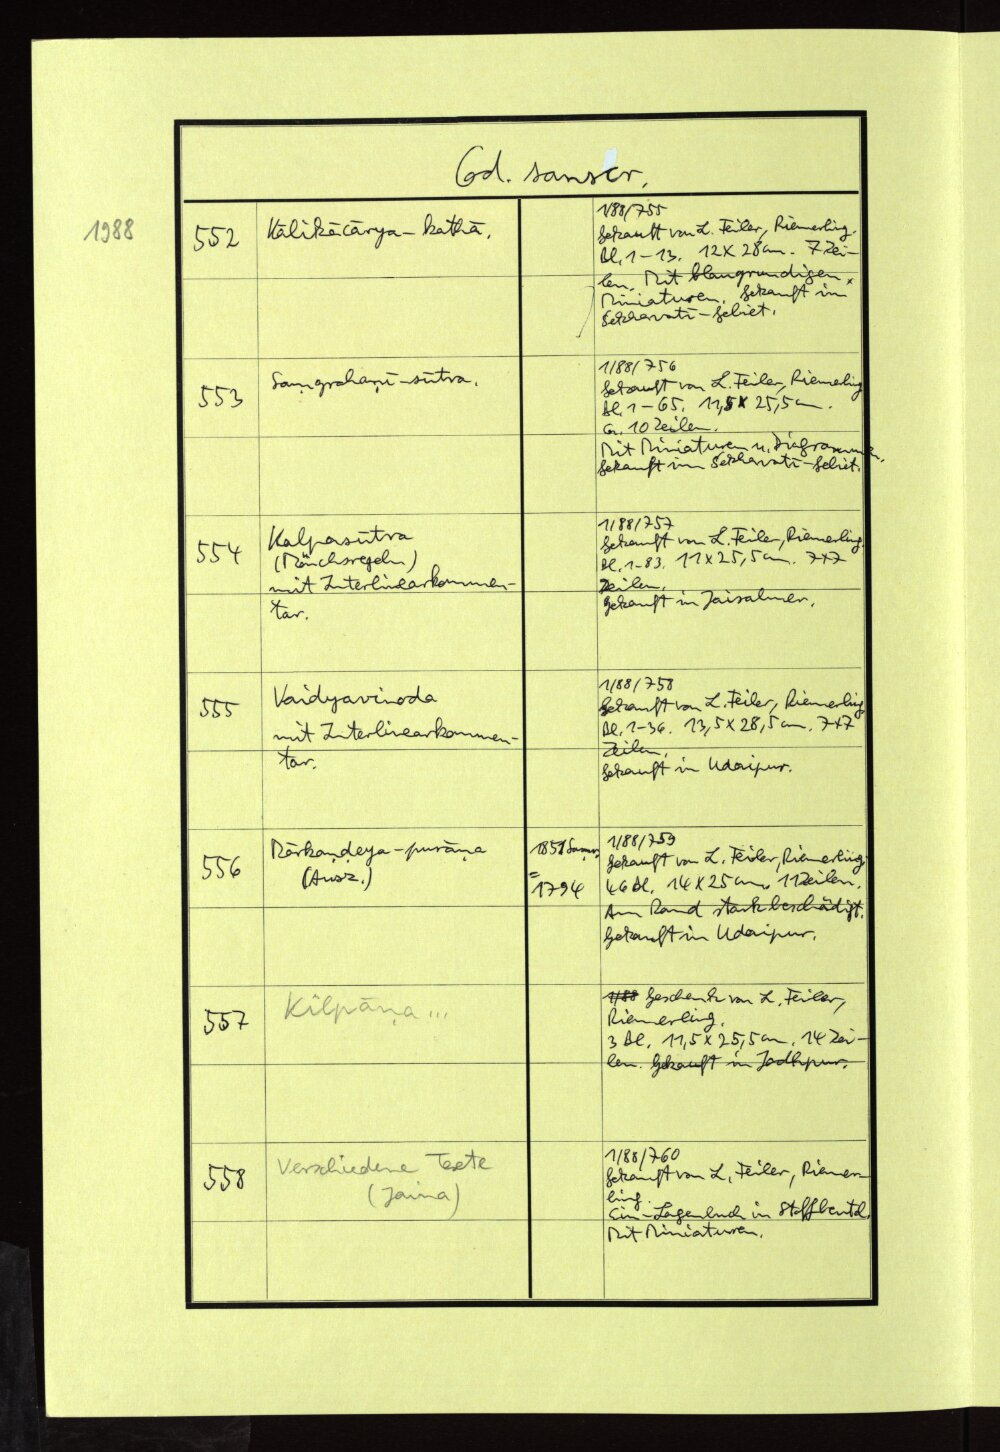 Cod. sanscr.
1988
552
Kālikācārya-kathā.
1/88/755
Gekauft von L. Feiler, Riemerling.
Bl. 1-13. 12 X 28 cm. 7 Zei-
len. Mit blaugrundigen
Miniaturen. Gekauft im
Sekhavati-Gebiet.
553
Saṃgrahaṇī-sūtra.
1/88/756
Gekauft von L. Feiler, Riemerling
Bl. 1-65. 11,5 X 25,5 cm.
ca. 10 Zeilen.
Mit Miniaturen u. Diagrammen.
Gekauft im Sekhavati-Gebiet.
554
Kalpasūtra
(Mönchsregeln)
mit Interlinearkommen-
tar.
1/88/757
Gekauft von L. Feiler, Riemerling.
Bl. 1-83. 11 X 25,5 cm. 7+7
Zeilen.
Gekauft in Jaisalmer.
555
Vaidyavinoda
mit Interlinearkommen-
tar.
1/88/758
Gekauft von L. Feiler, Riemerling
Bl. 1-36. 13,5 X 28,5 cm. 7+7
Zeilen.
Gekauft in Udaipur.
556
Mārkaṇḍeya-purāṇa
(Ausz.)
1851 Samv
=
1794
1/88/759
Gekauft von L. Feiler, Riemerling.
46 Bl. 14 X 25 cm. 11 Zeilen.
Am Rand stark beschädigt.
Gekauft in Udaipur.
557
Kīlpāṇa ...
1/88 Geschenk von L. Feiler,
Riemerling.
3 Bl. 11,5 X 25,5 cm. 14 Zei-
len. Gekauft in Jodhpur.
558
Verschiedene Texte
(Jaina)
1/88/760
Gekauft von L. Feiler, Riemer-
ling.
Ein Lagenbuch in Stoffbeutel.
Mit Miniaturen.